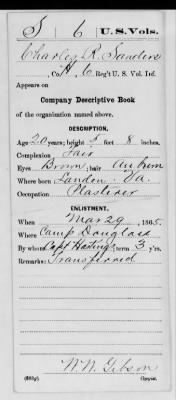 S 6 U.S. Vols.
Charles R. Sanders
, Co. H, 6 Reg't U. S. Vol. Inf.
Appears on
Company Descriptive Book
of the organization named above.
DESCRIPTION.
Age 20 years; height 5 feet 8 inches.
Complexion Fair
Eyes Brown; hair Auburn
Where born Va.
Occupation Plasterer
ENLISTMENT.
When Mar 29, 1865.
Where Camp Douglass
By whom Capt; term 3 y'rs.
Remarks: Transferred
W. N. Gibson
(383g) Copyist.